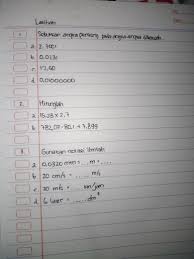 Latihan
1. Sebutkan angka penting pada angka-angka dibawah
a 2.7001
b 0.0131
c 12,60
d 0,01000000
2. Hitunglah
a 15.28 x 2.7
b 782,07 - 80,1 + 7.899
3. Gunakan notasi ilmiah
a 0.0320 mm = ..... m = .....
b 20 cm/s = ..... m/s
c 30 m/s = ..... km/jam
d 6 liter = ..... dm³